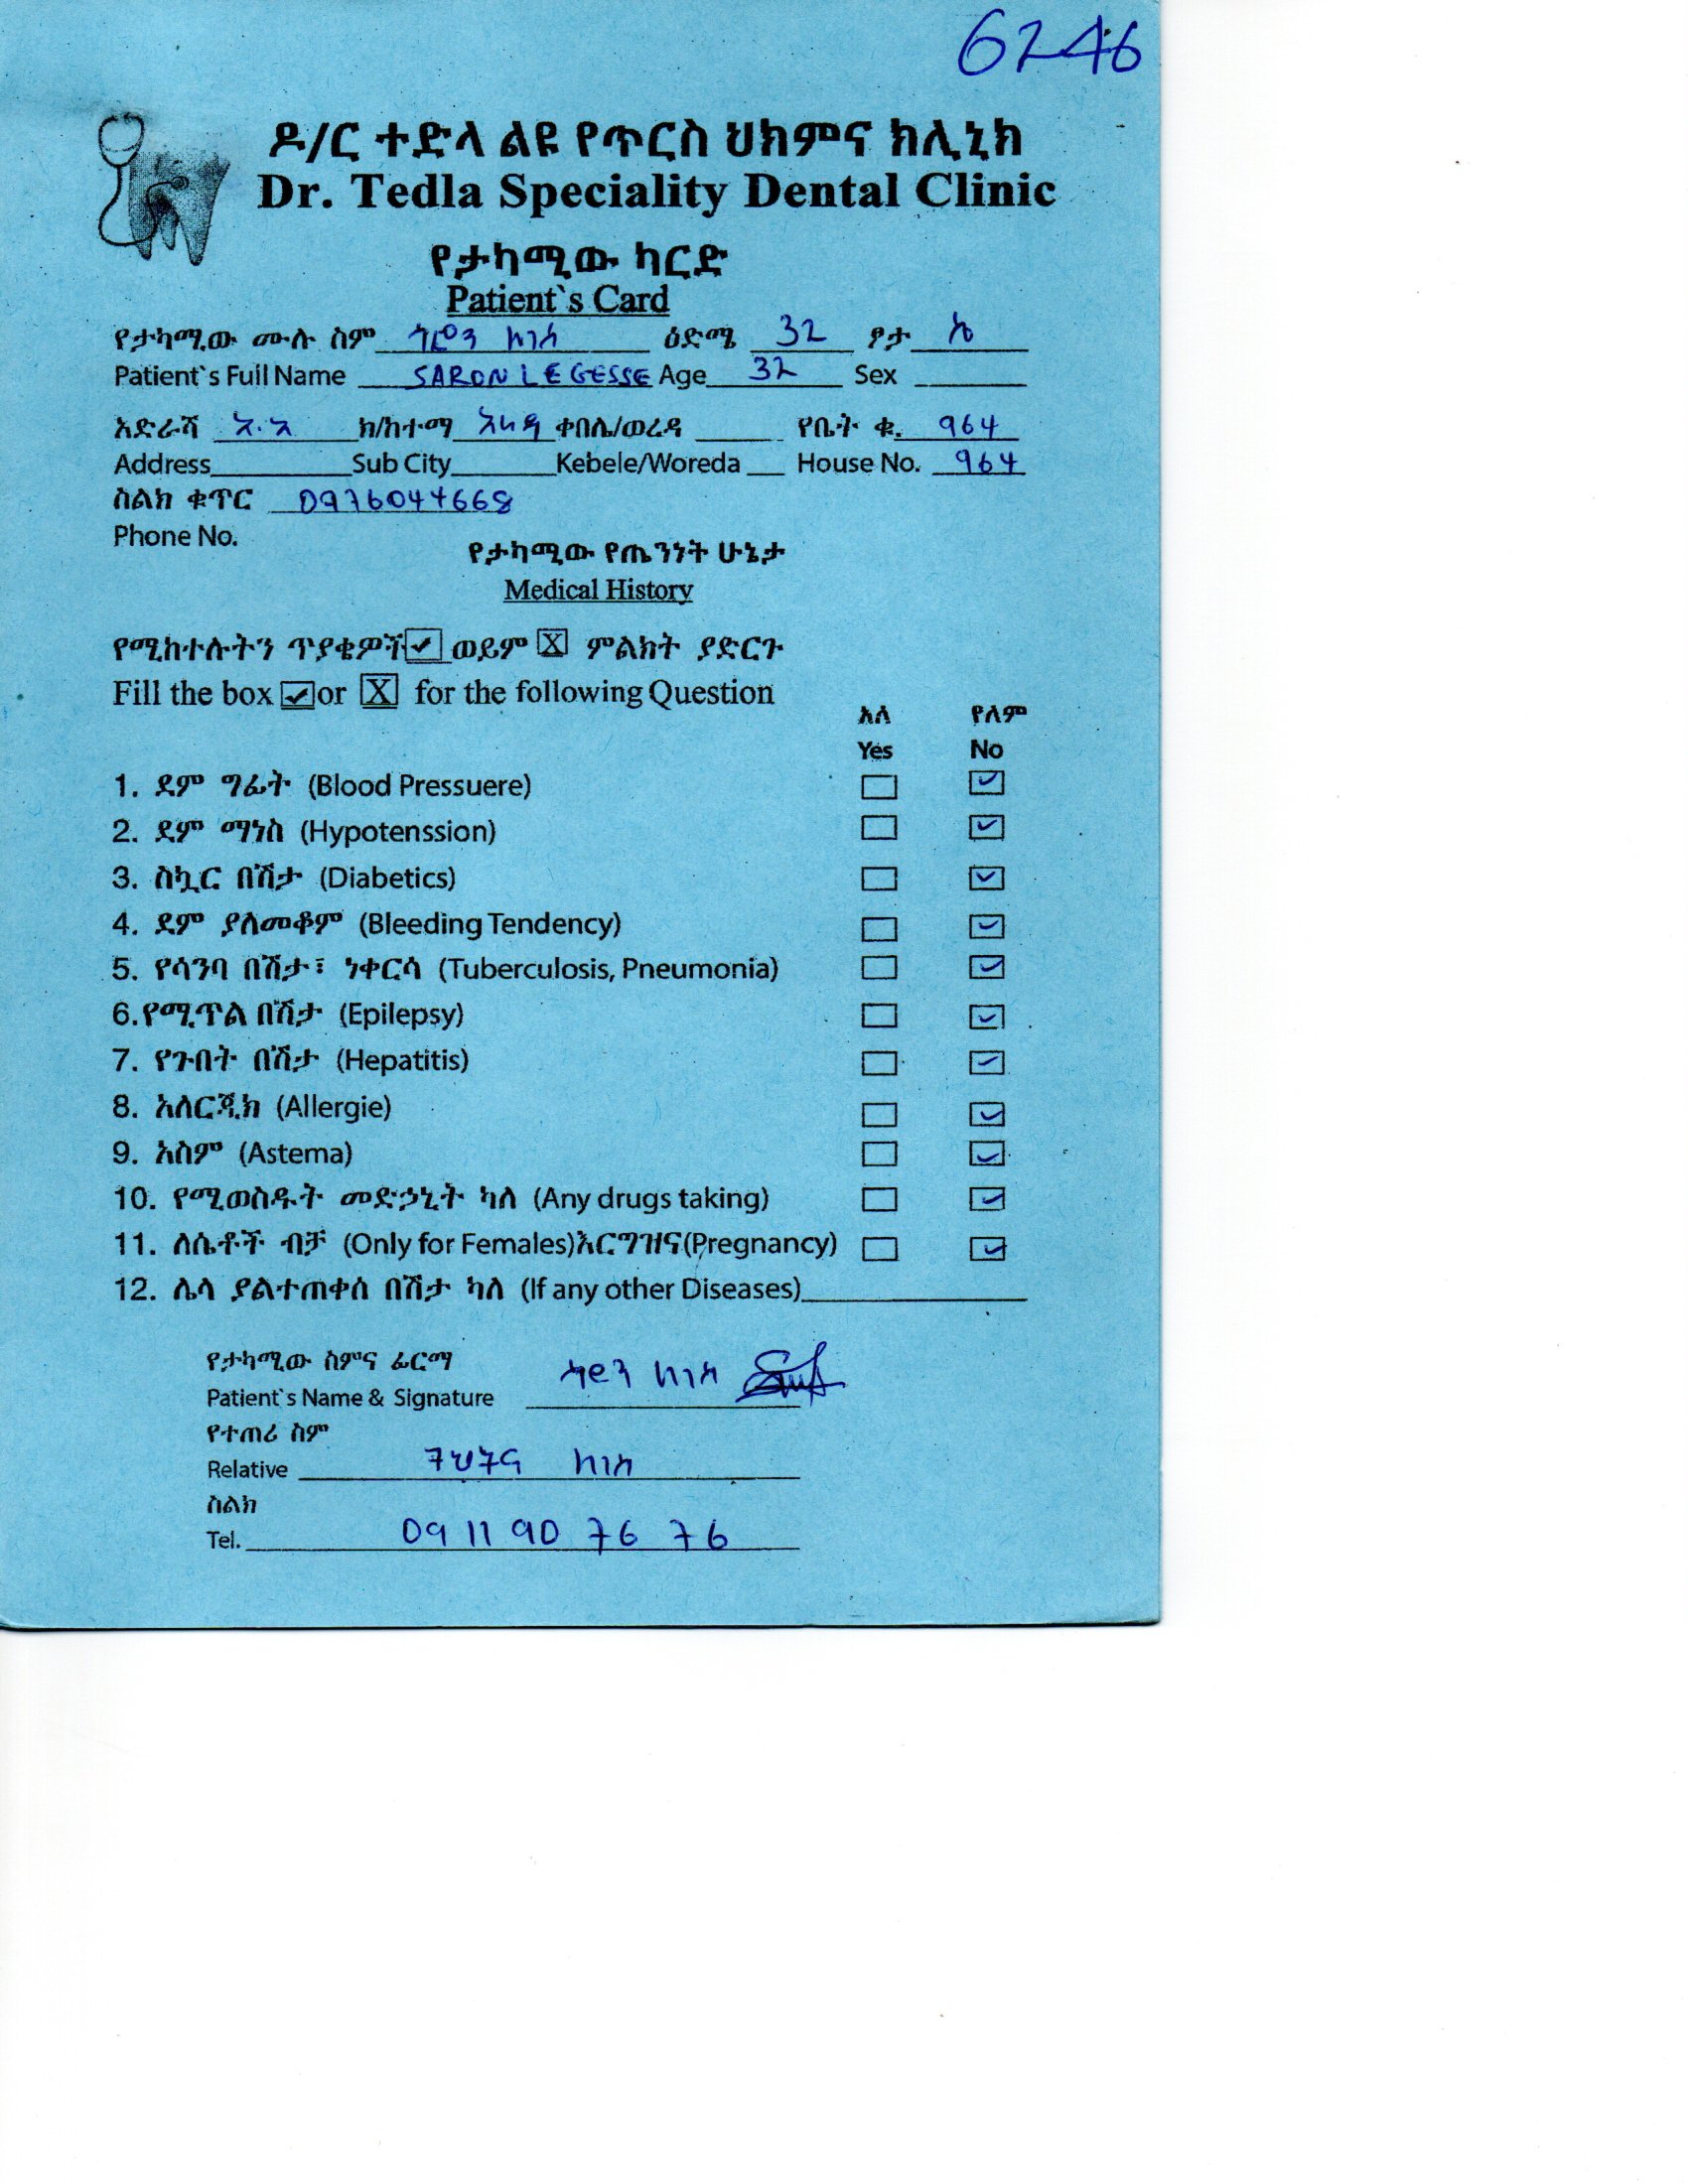 6246
ዶ/ር ተድላ ልዩ የጥርስ ህክምና ክሊኒክ
Dr. Tedla Speciality Dental Clinic
የታካሚው ካርድ
Patient`s Card
የታካሚው ሙሉ ስም ሳሮን ለገሰ ዕድሜ 32 ፆታ ሴ
Patient`s Full Name SARON LEGESSE Age 32 Sex
አድራሻ አ.አ ክ/ከተማ አራዳ ቀበሌ/ወረዳ የቤት ቁ. 964
Address Sub City Kebele/Woreda House No. 964
ስልክ ቁጥር 0976044668
Phone No.
የታካሚው የጤንነት ሁኔታ
Medical History
የሚከተሉትን ጥያቄዎች ✓ ወይም X ምልክት ያድርጉ
Fill the box ✓ or X for the following Question
አለ የለም
Yes No
1. ደም ግፊት (Blood Pressuere) ✓
2. ደም ማነስ (Hypotenssion) ✓
3. ስኳር በሽታ (Diabetics) ✓
4. ደም ያለመቆም (Bleeding Tendency) ✓
5. የሳንባ በሽታ፣ ነቀርሳ (Tuberculosis, Pneumonia) ✓
6.የሚጥል በሽታ (Epilepsy) ✓
7. የጉበት በሽታ (Hepatitis) ✓
8. አለርጂክ (Allergie) ✓
9. አስም (Astema) ✓
10. የሚወስዱት መድኃኒት ካለ (Any drugs taking) ✓
11. ለሴቶች ብቻ (Only for Females)እርግዝና(Pregnancy) ✓
12. ሌላ ያልተጠቀሰ በሽታ ካለ (If any other Diseases)
የታካሚው ስምና ፊርማ
Patient`s Name & Signature ሳሮን ለገሰ
የተጠሪ ስም
Relative ትህትና ለገሰ
ስልክ
Tel. 09 11 90 76 76